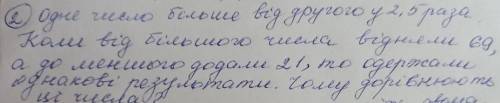 ② Одне число більше від другого у 2,5 раза
Коли від більшого числа відняли 69,
а до меншого додали 21, то одержали
однакові результати. Чому дорівнюють
ці числа?